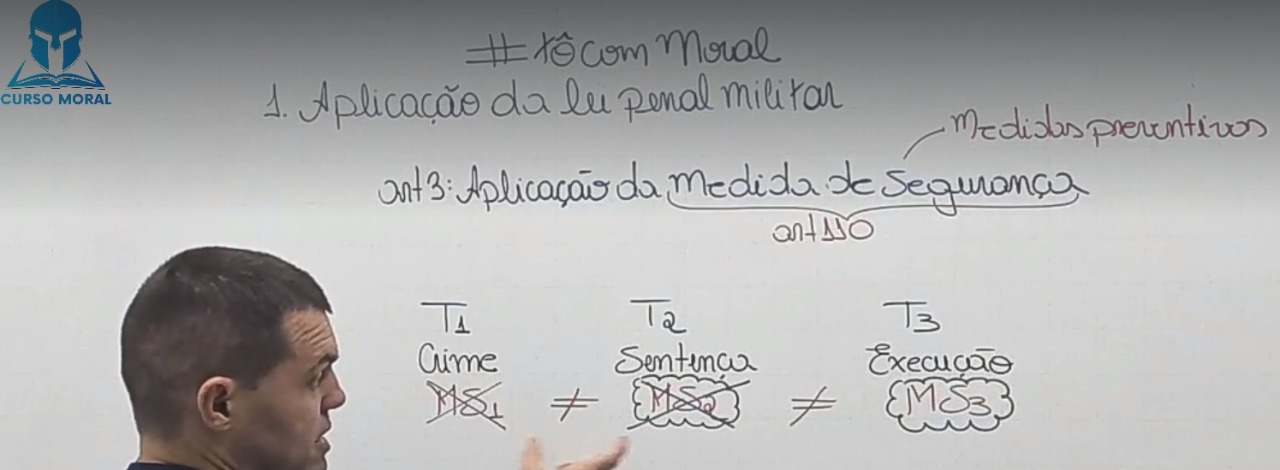 CURSO MORAL
#tôcom Moral
1. Aplicação da lei penal militar
Medidas preventivas
art 3: Aplicação da Medida de Segurança
art 110
T1 T2 T3
Crime Sentença Execução
MS1 ≠ MS2 ≠ MS3